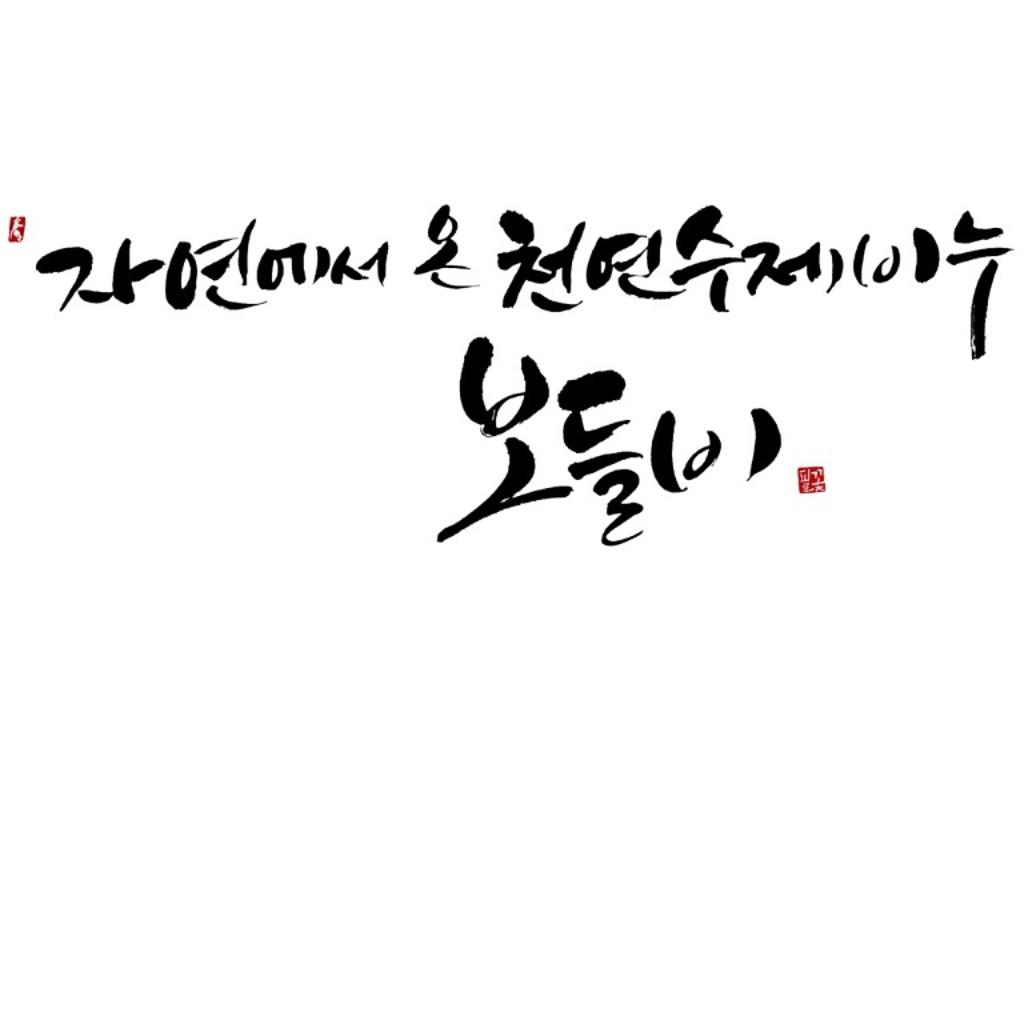 자연에서 온 천연수제비누
보들비